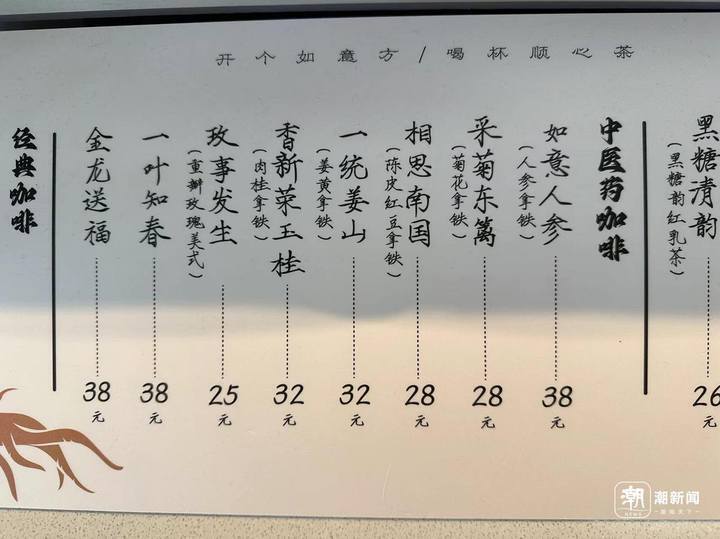 开个如意方/喝杯顺心茶
黑糖清韵
(黑糖韵红乳茶)
26
中医药咖啡
如意人参
(人参拿铁)
38元
采菊东篱
(菊花拿铁)
28元
相思南国
(陈皮红豆拿铁)
28元
一统姜山
(姜黄拿铁)
32元
香新荣玉桂
(肉桂拿铁)
32元
玫事发生
(重瓣玫瑰美式)
25元
一叶知春
38元
金龙送福
38元
经典咖啡
潮
NEWS
潮新闻